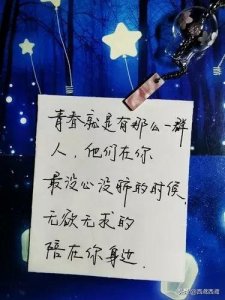 青春就是有那么一群
人，他们在你
最没心没肺的时候，
无欲无求的
陪在你身边．